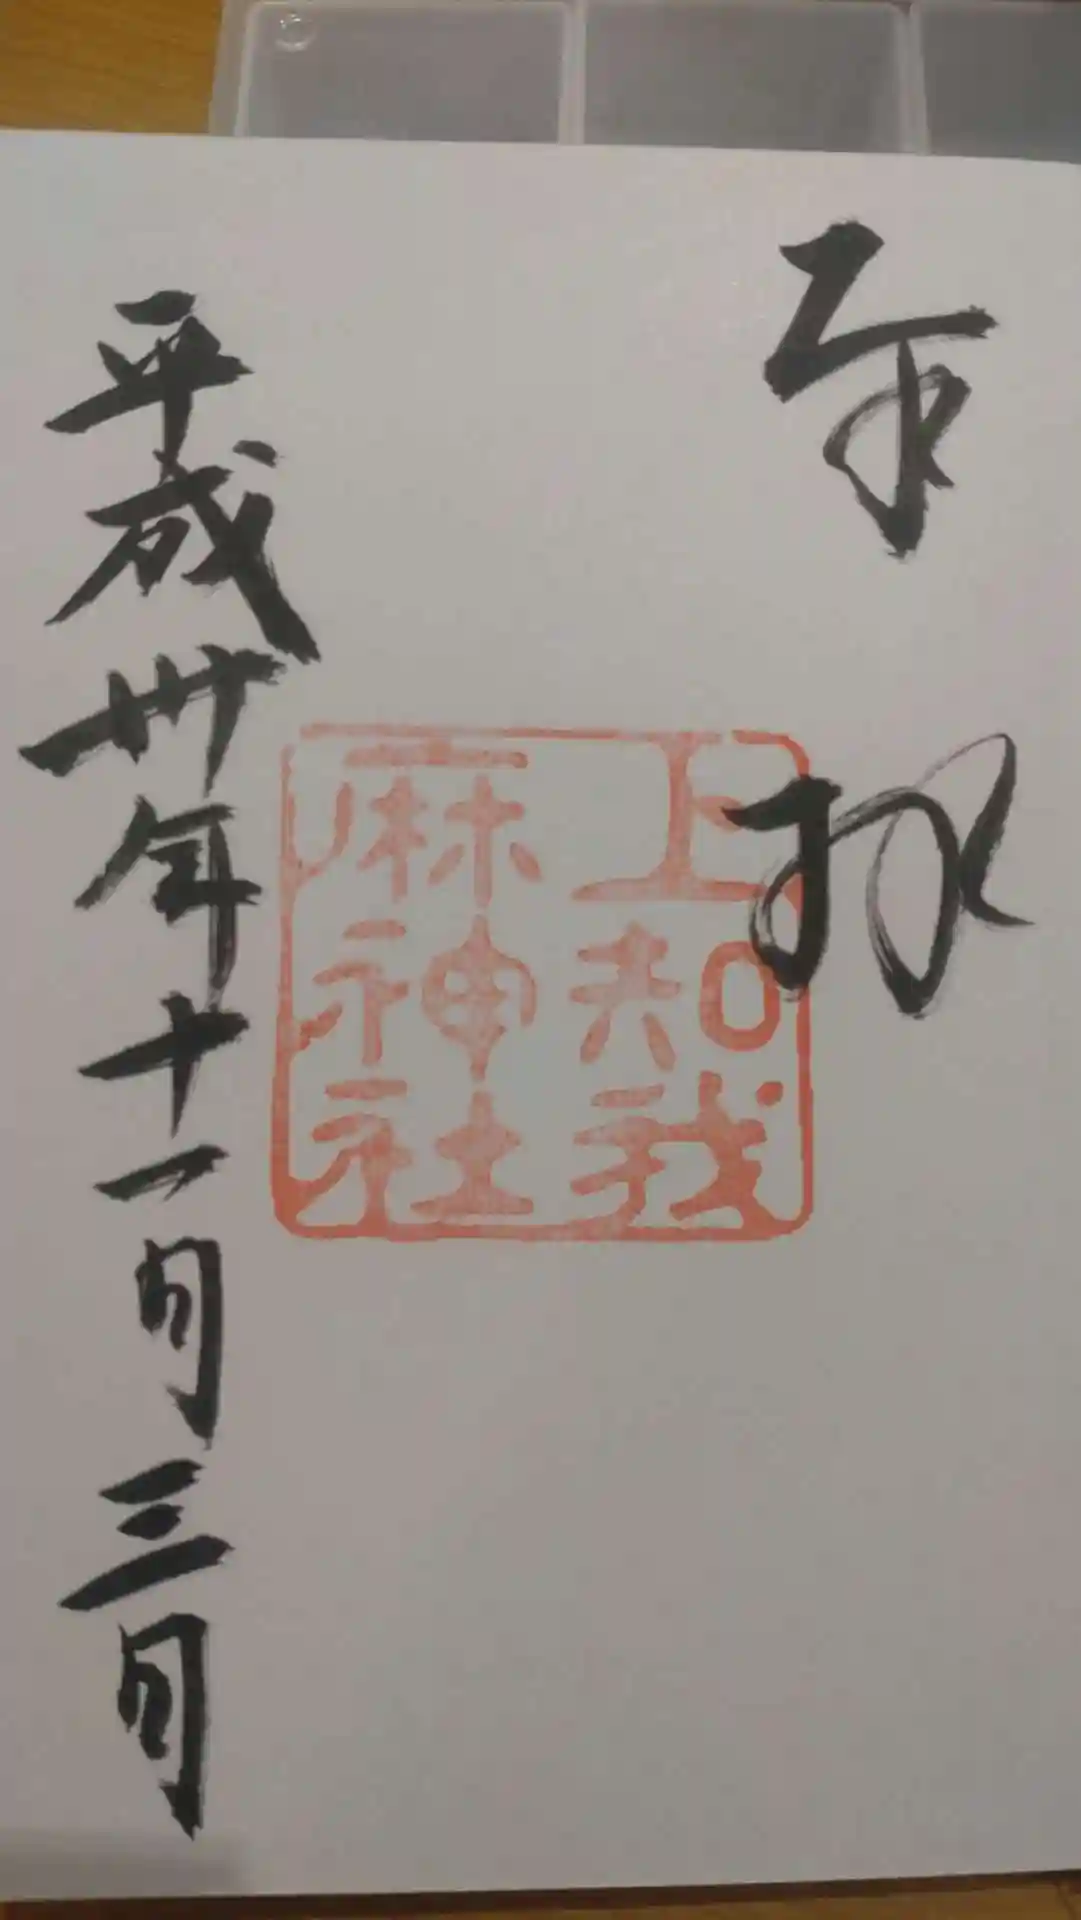 奉拝
上知我
麻神社
平成卅年十一月三日